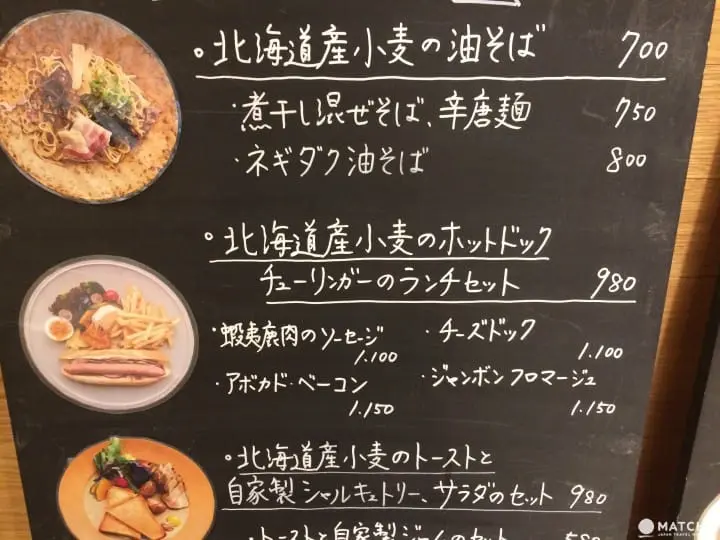 。北海道産小麦の油そば 700
・煮干し混ぜそば、辛唐麺 750
・ネギダク油そば 800
。北海道産小麦のホットドック
チューリンガーのランチセット 980
・蝦夷鹿肉のソーセージ 1.100
・チーズドック 1.100
・アボカド・ベーコン 1.150
・ジャンボンフロマージュ 1.150
。北海道産小麦のトーストと
自家製シャルキュトリー、サラダのセット 980
・トーストと自家製ジャムのセット 580
MATCH